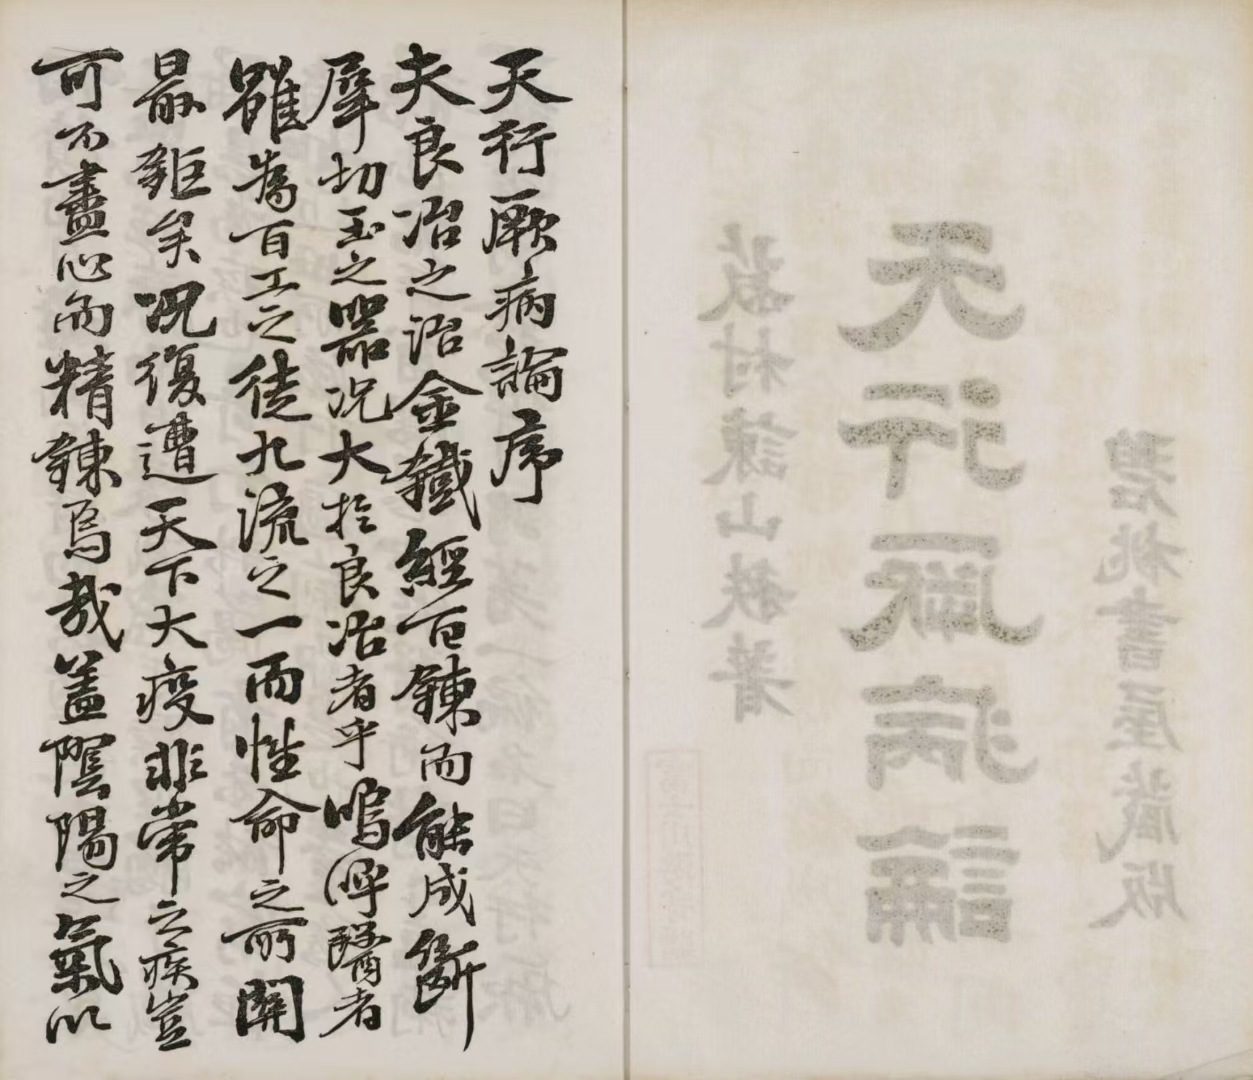 碧桃書屋藏版
天行厥病論
村諫山著
天行厥病論序
夫良冶之治金鐵經百鍊而能成斷
犀切玉之器况大於良冶者乎嗚呼醫者
雖為百工之徒九流之一而性命之所關
最鉅矣况復遭天下大疫非常之疾豈
可不盡心而精鍊焉哉蓋陰陽之氣以